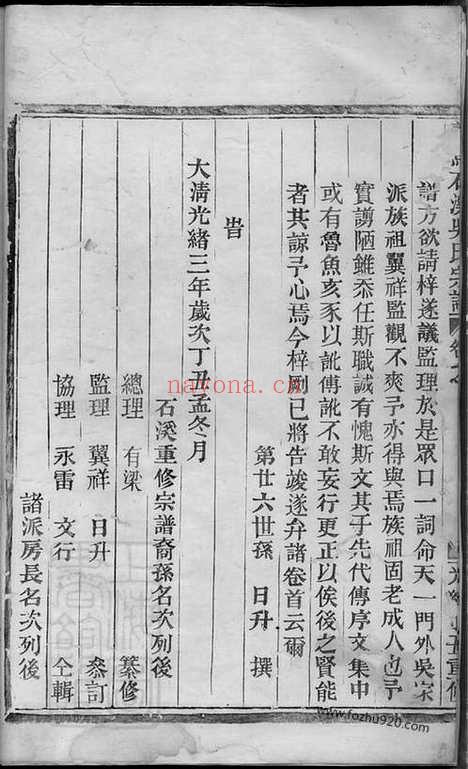 石溪吳氏宗譜
譜方欲請梓遂議監理於是眾口一詞命天一門外吳家
派族祖翼祥監觀不爽予亦得與焉族祖固老成人也予
實謭陋雖忝任斯職誠有愧斯文其于先代傳序文集中
或有魯魚亥豕以訛傳訛不敢妄行更正以俟後之賢能
者其諒予心焉今梓劂已將告竣遂弁諸卷首云爾
第廿六世孫 日升 撰
旹
大清光緒三年歲次丁丑孟冬月
石溪重修宗譜裔孫名次列後
總理 有梁 纂修
監理 翼祥 日升 叅訂
協理 永雷 文行 仝輯
諸派房長名次列後
nayona.cn
www.fozhu920.com